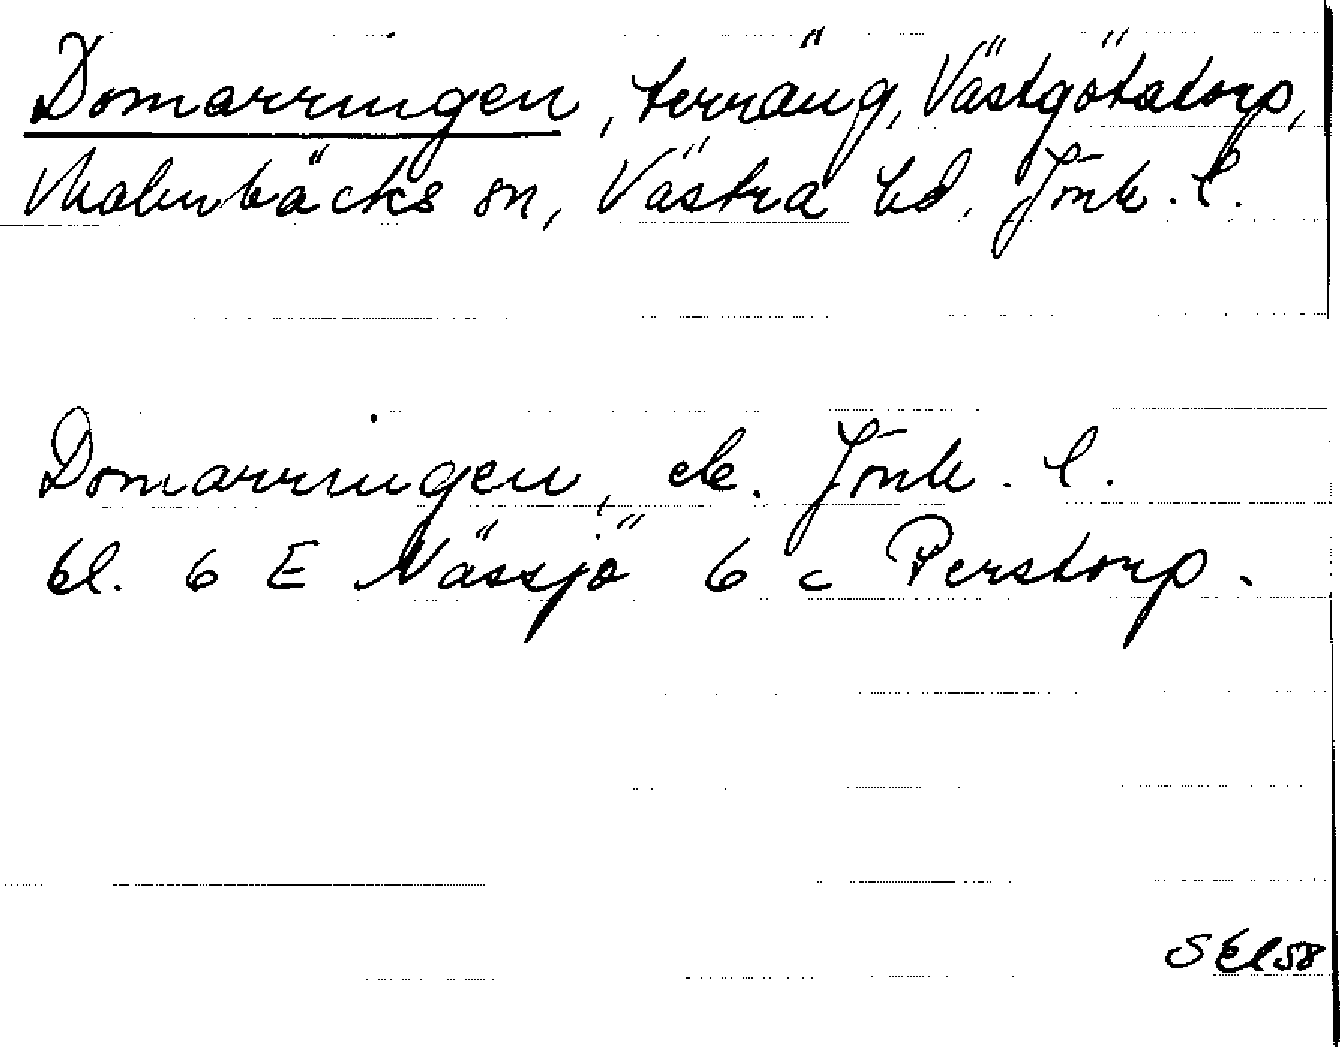 Domarringen, terräng, Västgötatorp,
Malmbäcks sn, Västra hd, Jönk. l.
Domarringen, ek. Jönk. l.
bl. 6 E Nässjö 6 c Perstorp.